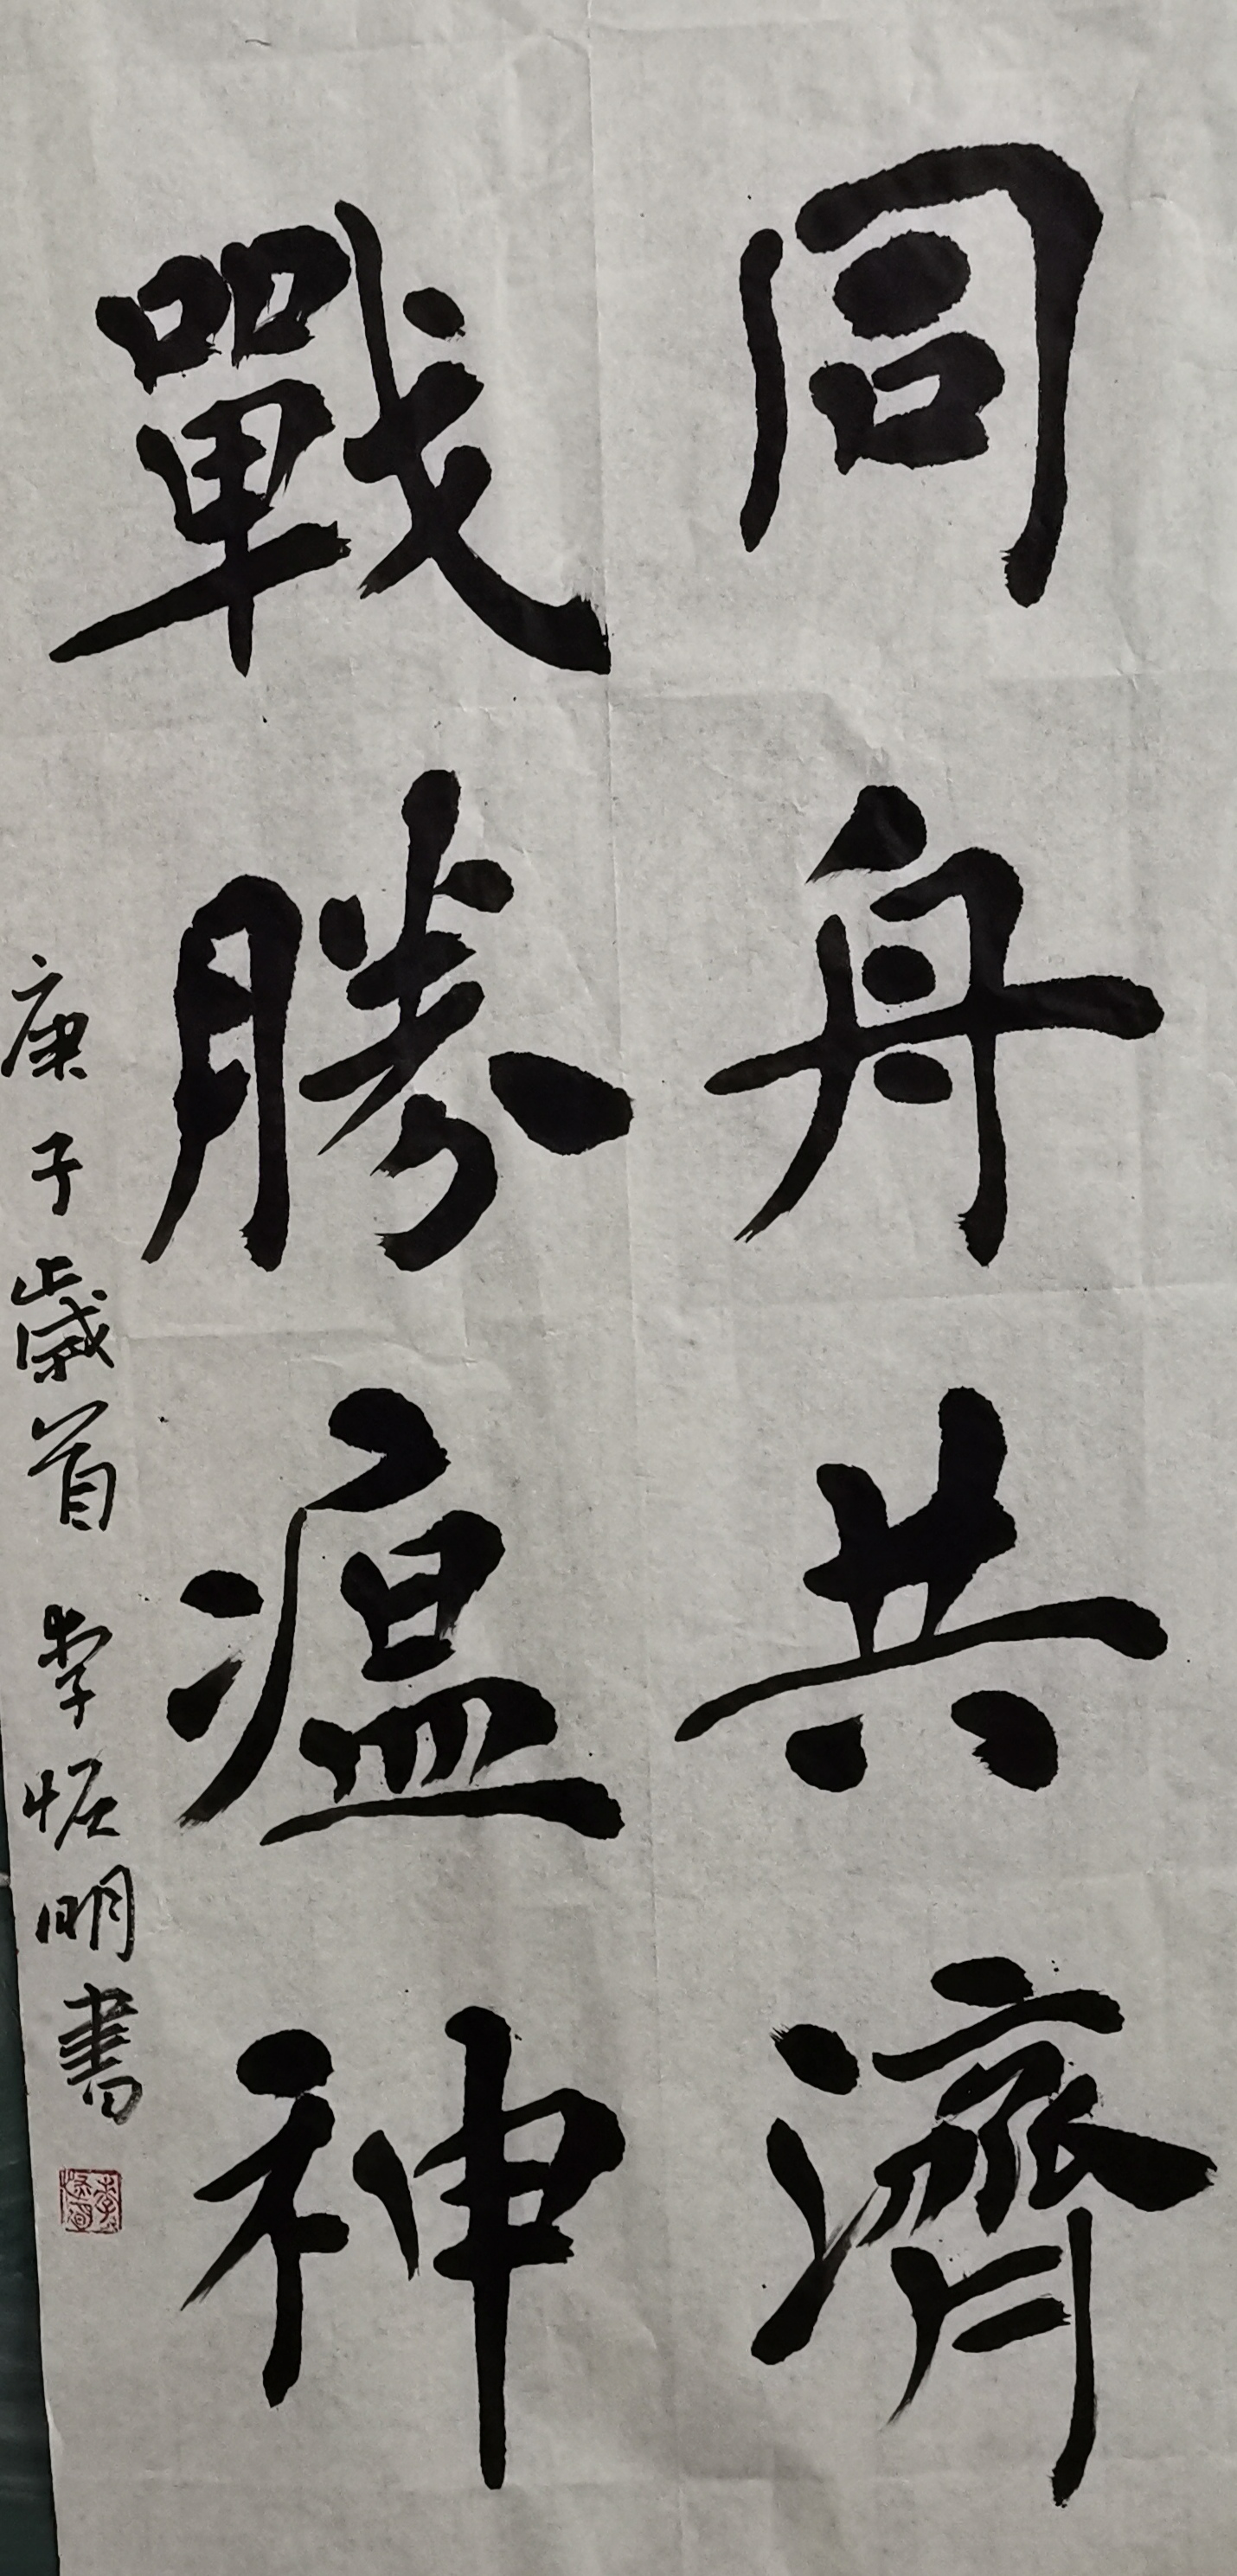 同舟共濟
戰勝瘟神
庚子歲首 李恆明書